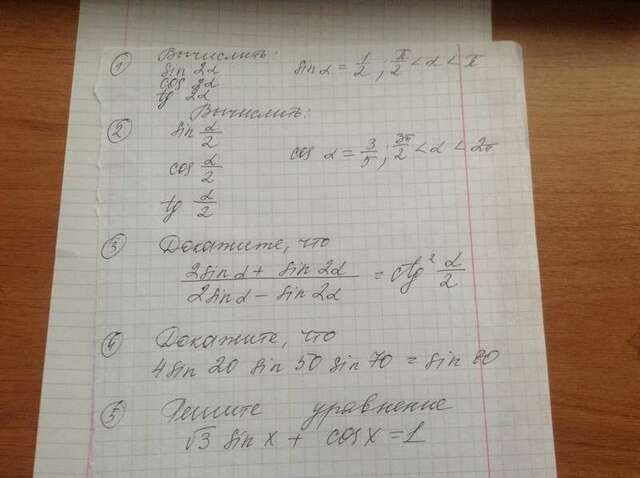 ① Вычислить:
sin 2α
cos 2α
tg 2α
sin α = 1/2; π/2 < α < π
Вычислить:
② sin α/2
cos α/2
tg α/2
cos α = 3/5; 3π/2 < α < 2π
③ Докажите, что
(2sinα + sin 2α)/(2sinα − sin 2α) = ctg² α/2
④ Докажите, что
4sin 20 sin 50 sin 70 = sin 80
⑤ Решите уравнение
√3 sin x + cos x = 1